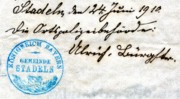 Stadeln, den 24. Juni 1910.
Die Ortspolizeibehörde:
KÖNIGREICH BAYERN
GEMEINDE
STADELN
Ulrich.